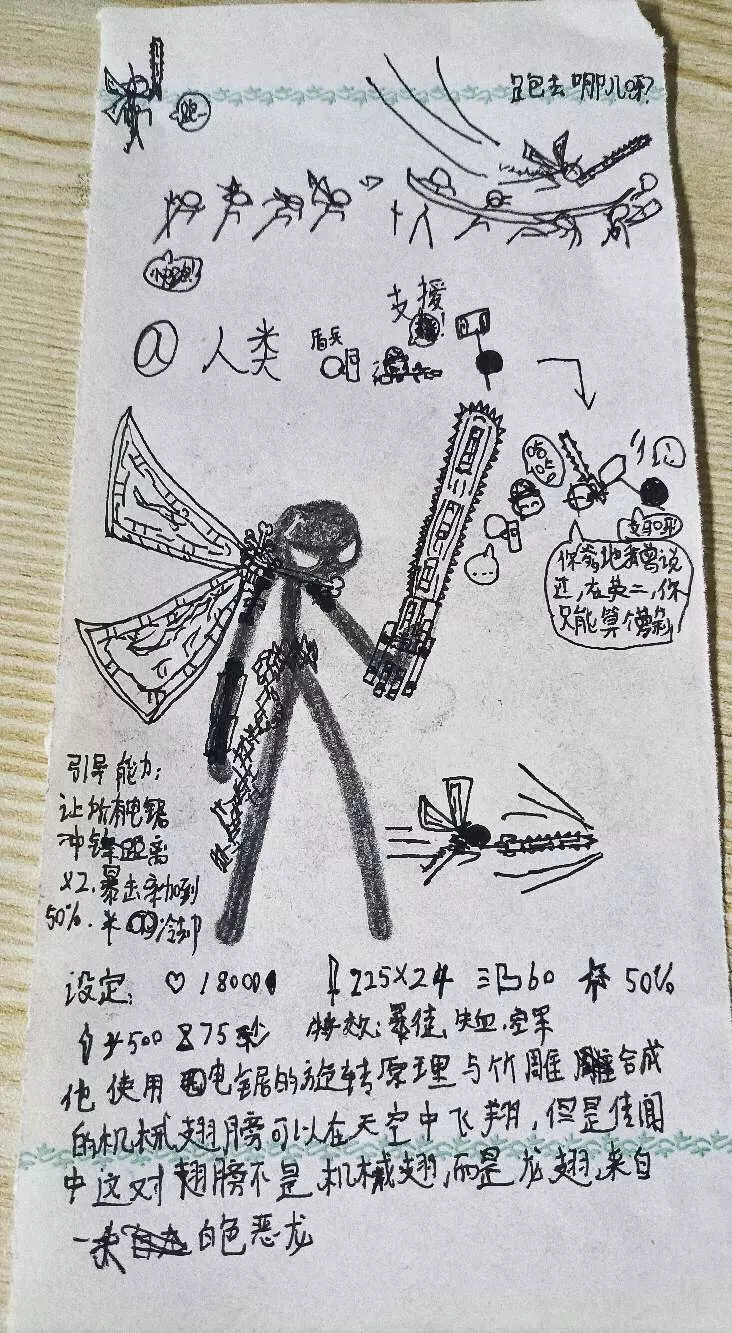 跑去哪儿呀?
跑
快跑!
支援
@ 人类 盾兵
哈哈
支即形
你爹地我曾说
过,在英二,你
只能算个
引导能力:
让所有电锯
冲锋距离
×2.暴击率加到
50%.半 冷却
设定: ♡ 18000 225×24 60 50%
500 75秒 特效:暴徒,失血,空军
他使用电锯的旋转原理与竹雕合成
的机械翅膀可以在天空中飞翔,但是传闻
中这对翅膀不是机械翅,而是龙翅,来自
一条 白色恶龙